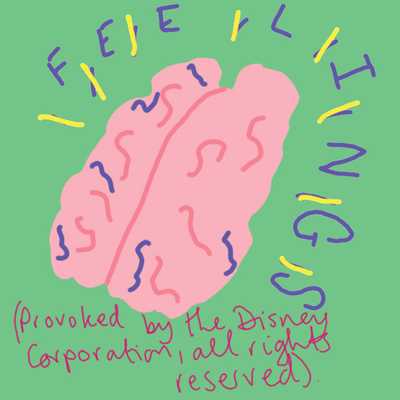 FEELINGS
(Provoked by the Disney
Corporation, all rights
reserved).